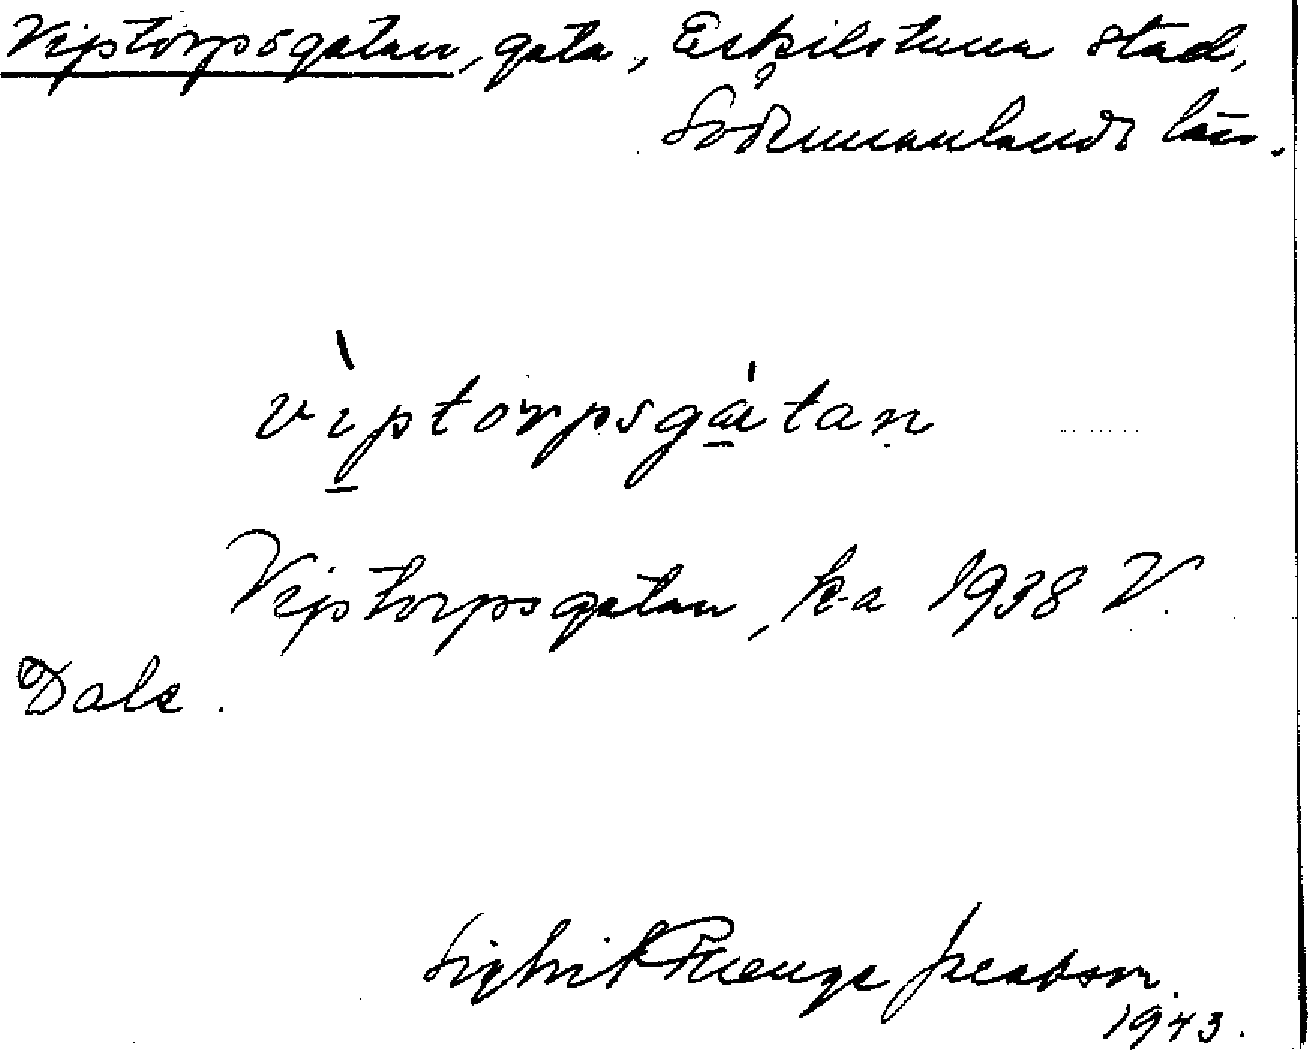 Viptorpsgatan, gata, Eskilstuna stad,
Södermanlands län.
vìptorpsgátan
Viptorpsgatan, ka 1938 V.
Dale.
Sigbrit Plenge Jacobson
1943.